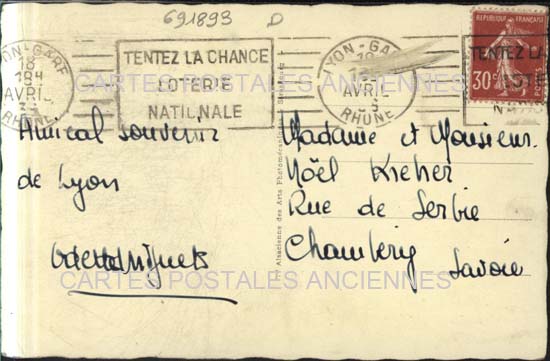 691893 D
LYON-GARE
18
184
AVRIL
RHONE
TENTEZ LA CHANCE
LOTERIE
NATIONALE
LYON-GARE
18
AVRIL
36
RHONE
REPUBLIQUE FRANCAISE
30c
TENTEZ LA
CARTES POSTALES ANCIENNES
Amical souvenir
de Lyon
Madame et Monsieur
Nöel Kreher
Rue de Serbie
Chambéry
Savoie
Alsacienne des Arts Photomécaniques
CARTES POSTALES ANCIENNES